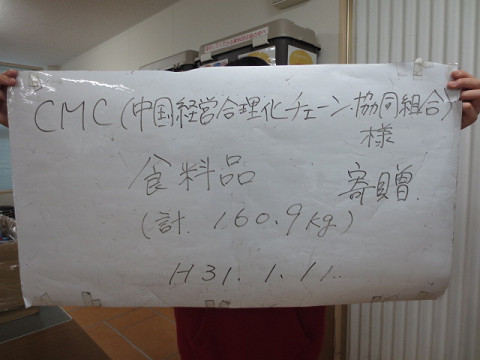 CMC(中国経営合理化チェーン・協同組合)
様
食料品 寄贈
(計 160.9kg)
H31.1.11.